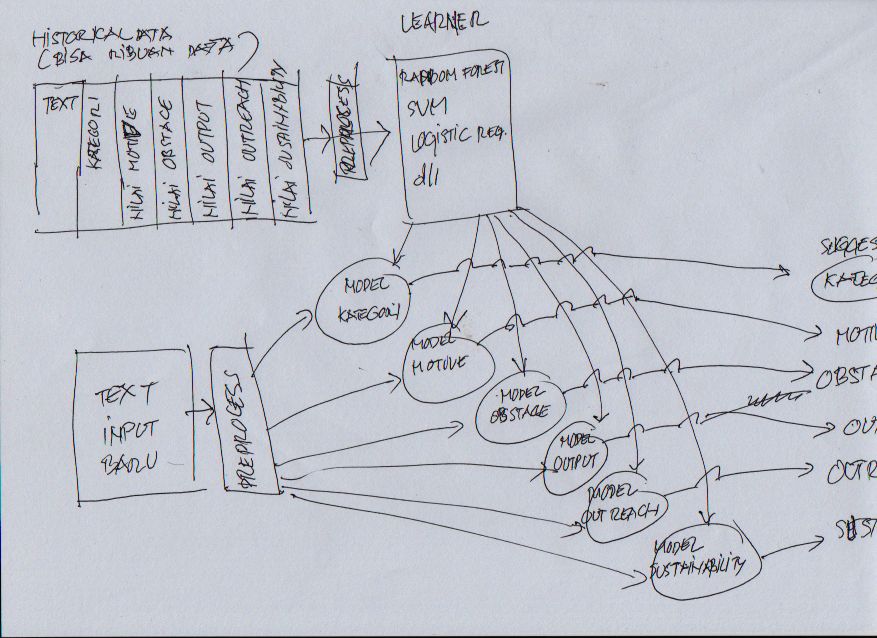 LEARNER
HISTORICAL DATA
(BISA RIBUAN DATA)
TEXT
KATEGORI
NILAI MOTIVE
NILAI OBSTACE
NILAI OUTPUT
NILAI OUTREACH
NILAI SUSTAINABILITY
PREPROCESS
RANDOM FOREST
SVM
LOGISTIC REG.
dll
MODEL
KATEGORI
MODEL
MOTIVE
MODEL
OBSTACE
MODEL
OUTPUT
MODEL
OUTREACH
MODEL
SUSTAINABILITY
TEXT
INPUT
BARU
PREPROCESS
SUGGES
KATEG
MOTI
OBSTA
OUT
OUTR
SUST